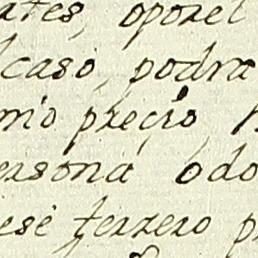 ates, oporel
caso, podra
mo precio
ersona odo
ese terzero p